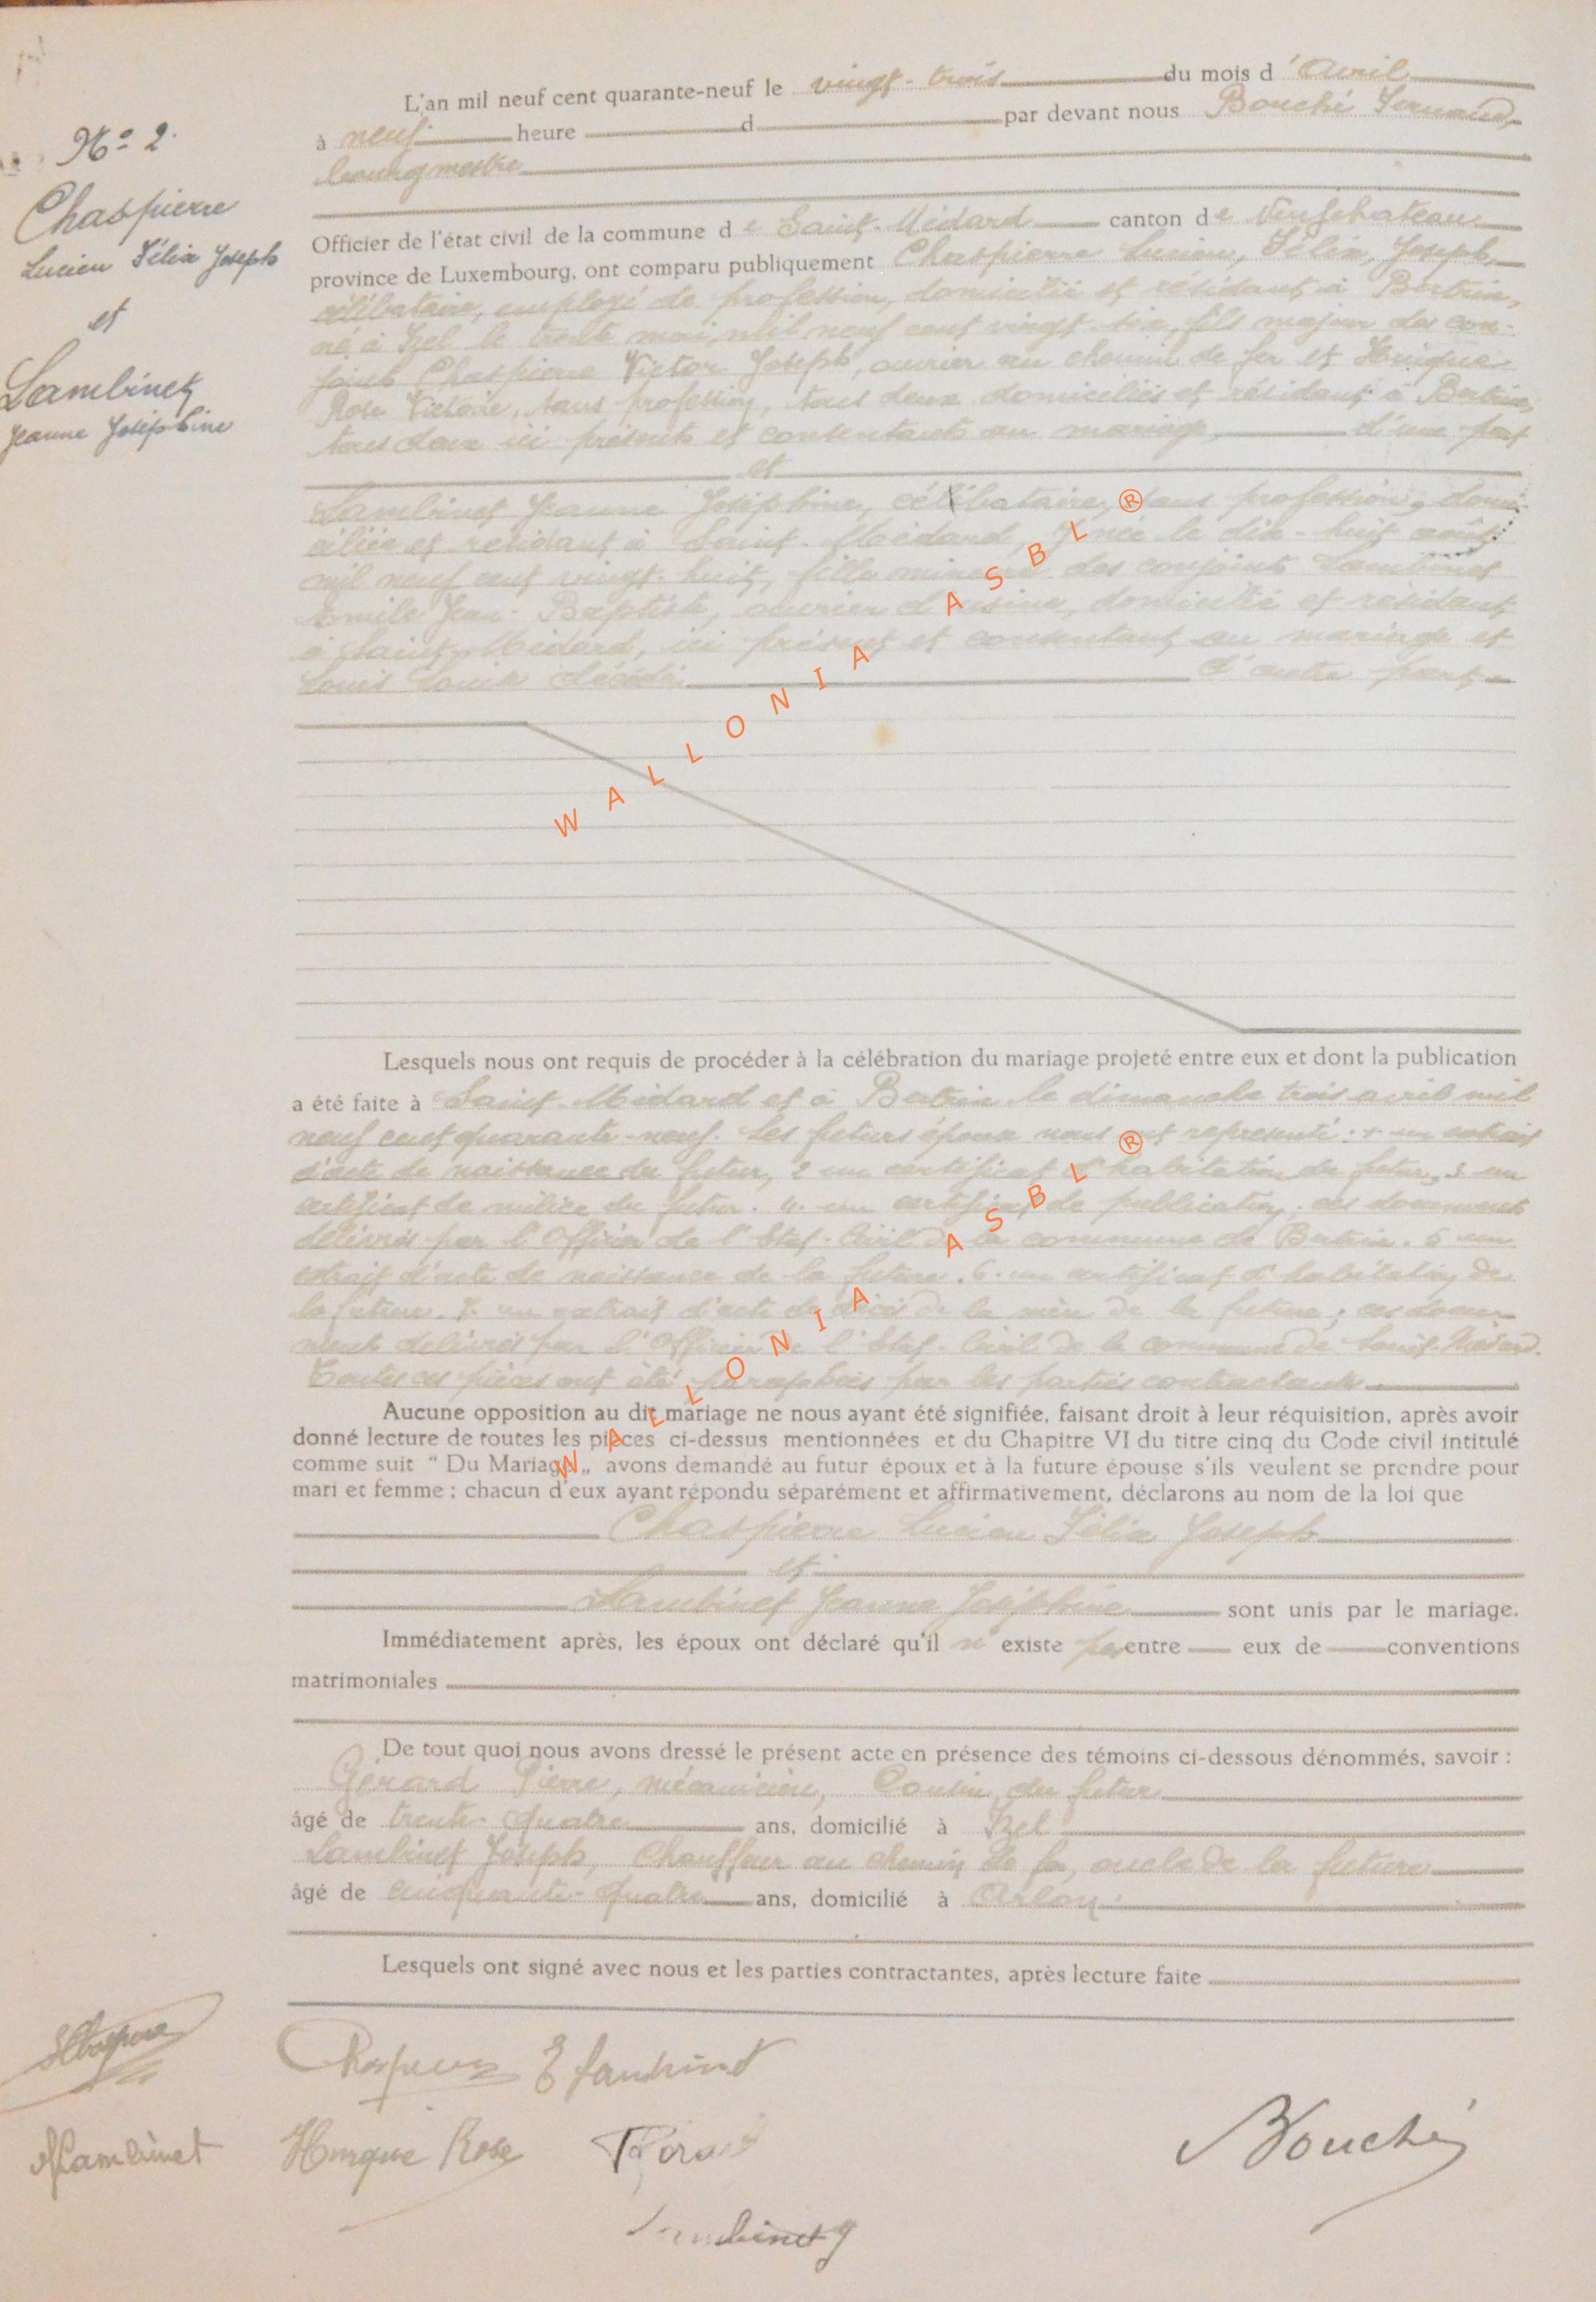 Nº 2.
Chaspierre
Lucien Félix Joseph
et
Lambinet
Jeanne Joséphine
L'an mil neuf cent quarante-neuf le vingt-trois du mois d'Avril
à neuf heure d par devant nous Bouché Fernand,
bourgmestre
Officier de l'état civil de la commune de Saint-Médard canton de Neufchateau
province de Luxembourg, ont comparu publiquement Chaspierre Lucien, Félix, Joseph,
célibataire, employé de profession, domicilié et résidant à Bertrix,
né à Izel le trente mai, mil neuf cent vingt-six, fils majeur des con-
joints Chaspierre Victor Joseph, ouvrier au chemin de fer et
Rose Victoire, sans profession, tous deux domiciliés et résidant à Bertrix,
tous deux ici présents et consentants au mariage, d'une part
et
Lambinet Jeanne Joséphine, célibataire, sans profession, domi-
ciliée et résidant à Saint-Médard, y née le dix-huit août
mil neuf cent vingt-huit, fille mineure des conjoints Lambinet
Emile Jean-Baptiste, ouvrier d'usine, domicilié et résidant
à Saint-Médard, ici présent et consentant au mariage et
Louis d'autre part
Lesquels nous ont requis de procéder à la célébration du mariage projeté entre eux et dont la publication
a été faite à Saint-Médard et à Bertrix le dimanche trois avril mil
neuf cent quarante-neuf. Les futurs époux nous ont représenté : 1 un extrait
d'acte de naissance du futur, 2 un certificat d'habitation du futur, 3 un
certificat de milice du futur. 4. un certificat de publication ; ces documents
délivrés par l'Officier de l'Etat-Civil de la commune de Bertrix. 5 un
extrait d'acte de naissance de la future. 6. un certificat d'habitation de
la future. 7. un extrait d'acte de décès de la mère de la future ; ces docu-
ments délivrés par l'Officier de l'Etat-Civil de la commune de Saint-Médard.
Toutes ces pièces ont été paraphées par les parties contractants
Aucune opposition au dit mariage ne nous ayant été signifiée, faisant droit à leur réquisition, après avoir
donné lecture de toutes les pièces ci-dessus mentionnées et du Chapitre VI du titre cinq du Code civil intitulé
comme suit " Du Mariage „ avons demandé au futur époux et à la future épouse s'ils veulent se prendre pour
mari et femme ; chacun d'eux ayant répondu séparément et affirmativement, déclarons au nom de la loi que
Chaspierre Lucien Félix Joseph
et
Lambinet Jeanne Joséphine sont unis par le mariage.
Immédiatement après, les époux ont déclaré qu'il n'existe pas entre eux de conventions
matrimoniales
De tout quoi nous avons dressé le présent acte en présence des témoins ci-dessous dénommés, savoir :
Gérard Pierre, mécanicien, Cousin du futur
âgé de trente-quatre ans, domicilié à Izel
Lambinet Joseph, Chauffeur au chemin de fer, oncle de la future
âgé de cinquante-quatre ans, domicilié à Arlon.
Lesquels ont signé avec nous et les parties contractantes, après lecture faite
Chaspierre E Lambinet
Lambinet Rose Bouché
Lambinet J
WALLONIA ASBL ®
WALLONIA ASBL ®